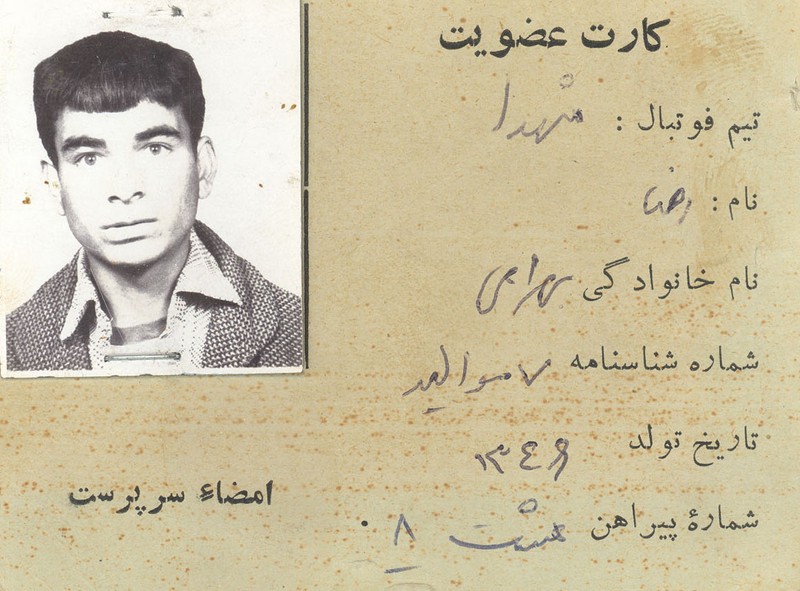 کارت عضویت
تیم فوتبال : شهدا
نام : رضا
نام خانوادگی بهرامی
شماره شناسنامه ۷
تاریخ تولد ۱۳۴۶
شمارهٔ پیراهن هشت ۸
امضاء سرپرست